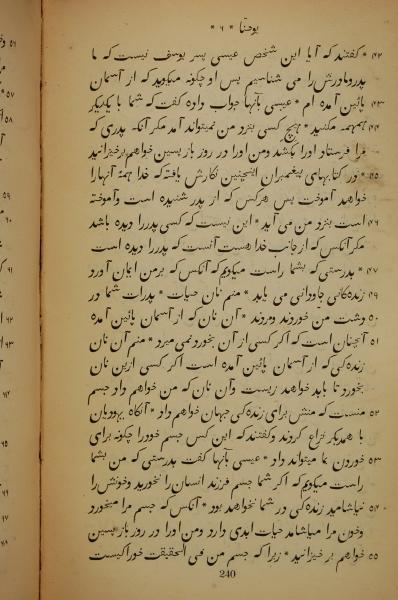 يوحنّا * ۶ *
۴۲ * کفتند که آیا این شخص عیسی پسر یوسف نیست که ما
پدر ومادرش را می شناسیم پس او چکونه میکوید که از آسمان
۴۳ پائین آمده ام * عیسی بآنها جواب داده کفت که شما با یکدیکر
۴۴ همهمه مکنید * هیچ کسی بنزد من نمیتواند آمد مکر آنکه پدری که
مرا فرستاد اورا بکشد ومن اورا در روز باز پسین خواهم برخیزانید
۴۵ * در کتابهای پیغمبران اینچنین نکارش یافته که خدا همهٔ آنهارا
خواهد آموخت پس هرکس که از پدر شنیده است وآموخته
۴۶ است بنزد من می آید * این نیست که کسی پدررا دیده باشد
مکر آنکس که از جانب خدا هست آنست که پدررا دیده است
۴۷ * بدرستی که بشما راست میکویم که آنکس که برمن ایمان آورد
۴۹ زنده‌کانی جاودانی می یابد * منم نان حیات * پدران شما در
۵۰ دشت من خوردند ومردند * آن نان که از آسمان پائین آمده
۵۱ آنچنان است که اکر کسی از آن بخورد نمی میرد * منم آن نان
زنده‌کی که از آسمان پائین آمده است اکر کسی ازین نان
بخورد تا باید خواهد زیست وآن نان که من خواهم داد جسم
۵۲ منست که منش برای زنده‌کی جهان خواهم داد * آنکاه یهودیان
با همدیکر نزاع کردند وکفتند که این کس جسم خودرا چکونه برای
۵۳ خوردن بما میتواند داد * عیسی بآنها کفت بدرستی که من بشما
راست میکویم که اکر شما جسم فرزند انسان را نخورید وخونش را
۵۴ نیاشامید زنده‌کی در شما نخواهد بود * آنکس که جسم مرا میخورد
وخون مرا میاشامد حیات ابدی دارد ومن اورا در روز باز پسین
۵۵ خواهم بر خیزانید * زیرا که جسم من فی الحقیقت خوراکیست
240